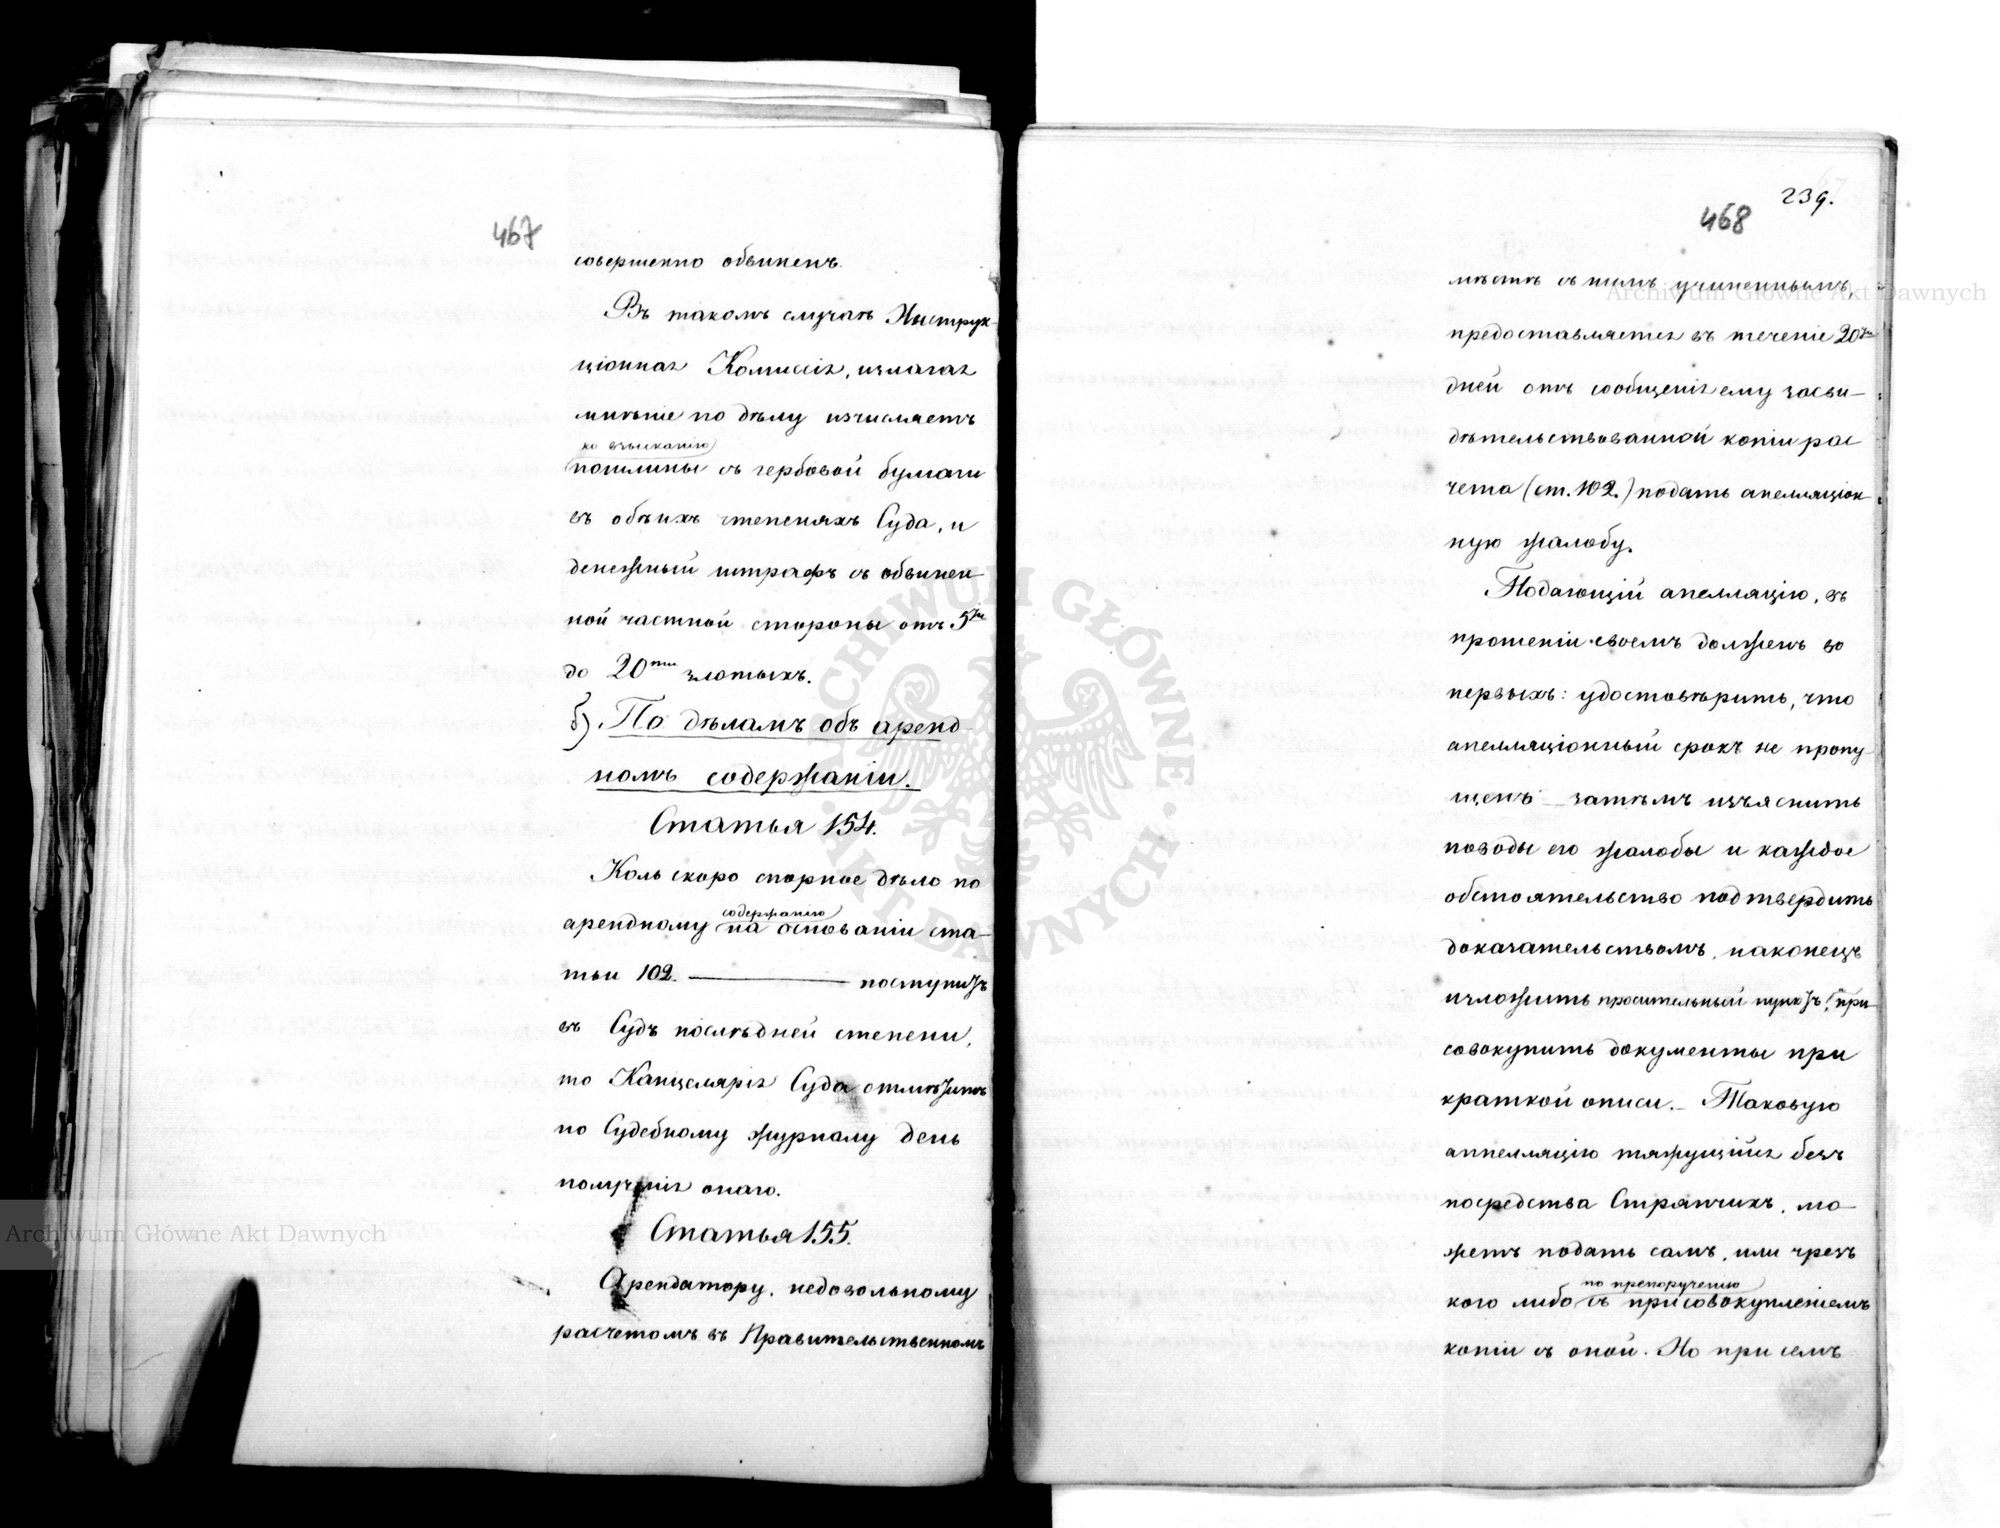 467
совершенно обвиненъ.
Въ такомъ случаѣ Инструк-
ціонная Комиссія, излагая
мнѣніе по дѣлу изчисляетъ
ко взысканію
пошлины съ гербовой бумаги
въ обѣихъ степеняхъ Суда, и
денежный штрафъ съ обвинен-
ной частной стороны отъ 5ти
до 20ти злотыхъ.
б). По дѣламъ объ аренд-
номъ содержаніи.
Статья 154.
Коль скоро спорное дѣло по
содержанію
арендному на основаніи ста-
тьи 102. ——— поступитъ
въ Судъ послѣдней степени,
то Канцелярія Суда отмѣтитъ
по Судебному журналу день
полученія онаго.
Статья 155.
Арендатору, недовольному
расчетомъ въ Правительственномъ
239.
468
мѣстѣ съ нимъ учиненнымъ,
предоставляется въ теченіе 20ти
дней отъ сообщенія ему засви-
дѣтельствованной копіи рас
чета (ст. 102.) подать апелляціон-
ную жалобу.
Подающій апелляцію, въ
прошеніи своемъ долженъ во
первыхъ: удостовѣрить, что
апелляціонный срокъ не пропу-
щенъ затѣмъ изъяснить
поводы его жалобы и каждое
обстоятельство подтвердить
доказательствомъ, наконецъ
изложить просительный пунктъ, и при
совокупить документы при
краткой описи. – Таковую
аппелляцію тяжущійся безъ
посредства Стряпчихъ, мо-
жетъ подать самъ, или чрезъ
по препорученію
кого либо съ присовокупленіемъ
копіи съ оной. Но при семъ
Archiwum Główne Akt Dawnych
Archiwum Główne Akt Dawnych
ARCHIWUM GŁÓWNE · AKT DAWNYCH ·